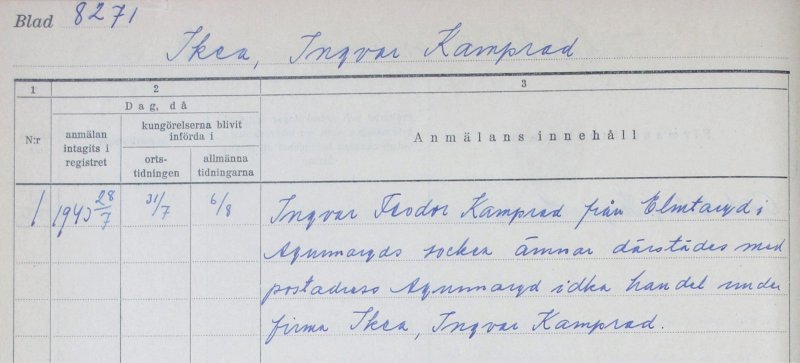 Blad 8271
Ikea, Ingvar Kamprad
1 2 3
Dag, då
N:r
anmälan intagits i registret
kungörelserna blivit införda i
orts-tidningen
allmänna tidningarna
Anmälans innehåll
1 1943 28/7 31/7 6/8
Ingvar Feodor Kamprad från Elmtaryd i
Agunnaryds socken ämnar därstädes med
postadress Agunnaryd idka handel under
firma Ikea, Ingvar Kamprad.